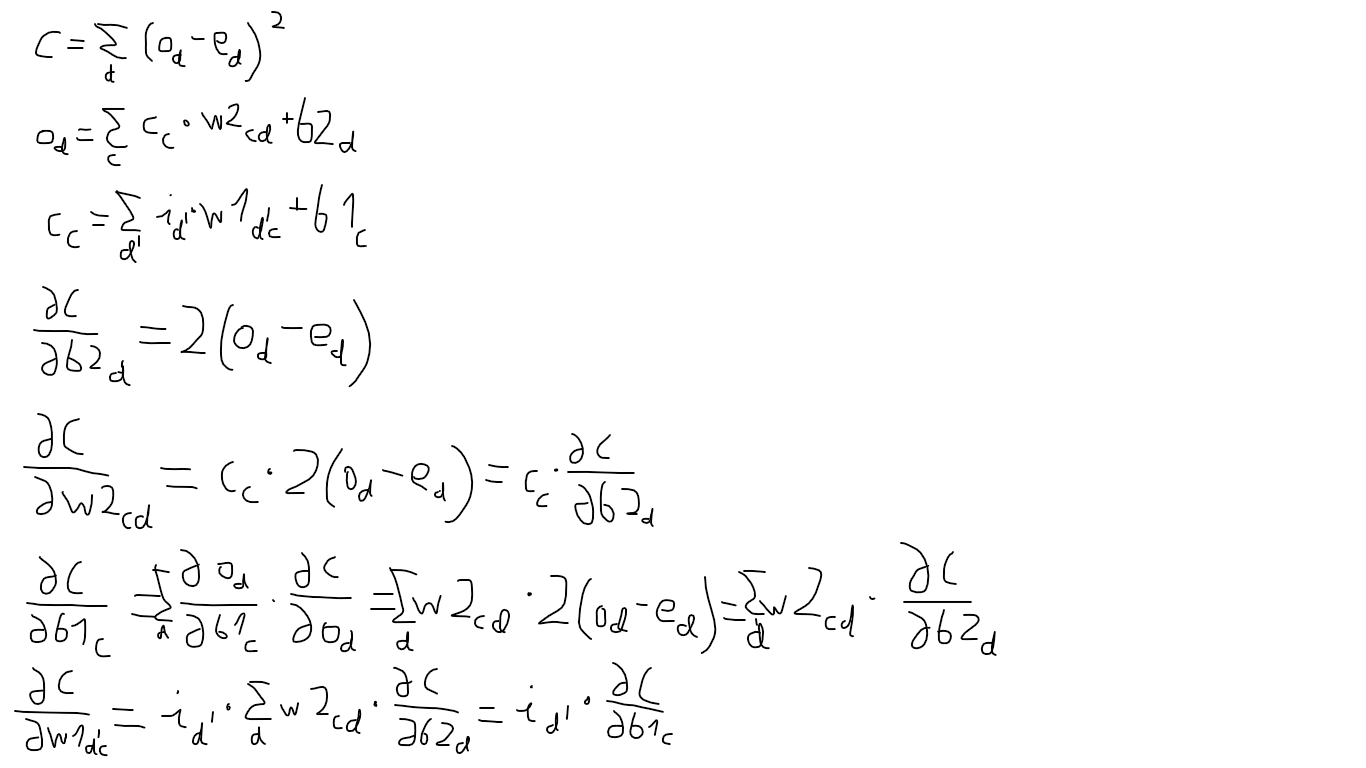 C = ∑_d (o_d - e_d)^2
o_d = ∑_c c_c · w2_{cd} + b2_d
c_c = ∑_{d'} i_{d'} · w1_{d'c} + b1_c
∂C/∂b2_d = 2(o_d - e_d)
∂C/∂w2_{cd} = c_c · 2(o_d - e_d) = c_c · ∂C/∂b2_d
∂C/∂b1_c = ∑_d ∂o_d/∂b1_c · ∂C/∂o_d = ∑_d w2_{cd} · 2(o_d - e_d) = ∑_d w2_{cd} · ∂C/∂b2_d
∂C/∂w1_{d'c} = i_{d'} · ∑_d w2_{cd} · ∂C/∂b2_d = i_{d'} · ∂C/∂b1_c